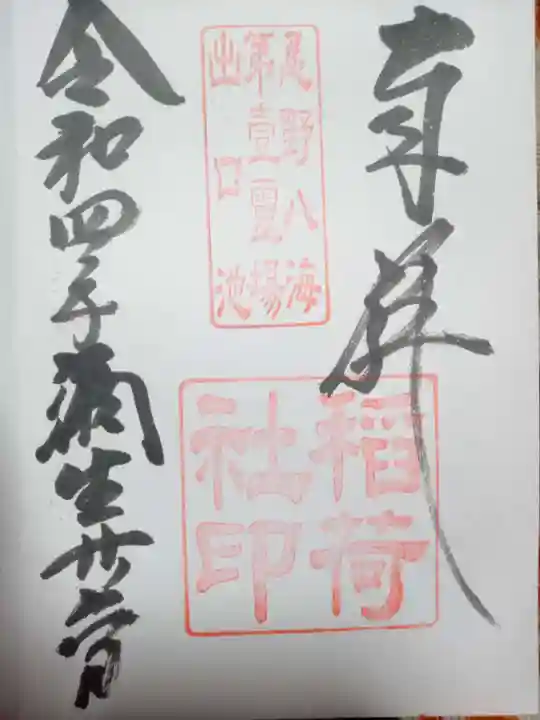 奉拝
忍野八海
第壹霊場
出口池
稲荷
社印
令和四年彌生廿六日